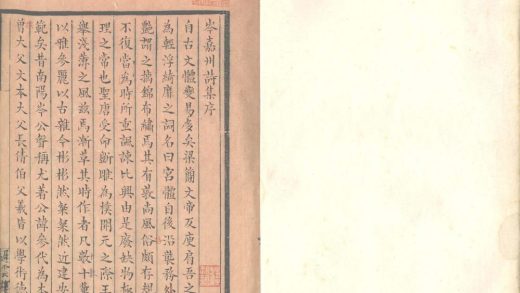 岑嘉州詩集序
自古文體變易多矣梁簡文帝及庾肩吾之
為輕浮綺靡之詞名曰宮體自後沿襲務於
艷謂之摛錦布繡焉其有敦尚風俗頗存規
不復當為時所重諷諫比興由是廢缺物極
理之常也聖唐受命斲雕為樸開元之際王
舉淺薄之風兹焉漸革其時作者凡數十輩
以雅參麗以古雜今彬彬然粲粲然近建安
範矣昔南陽岑公聲稱尤著公諱參代為本
曾大父文本大父長倩伯父羲皆以學術德